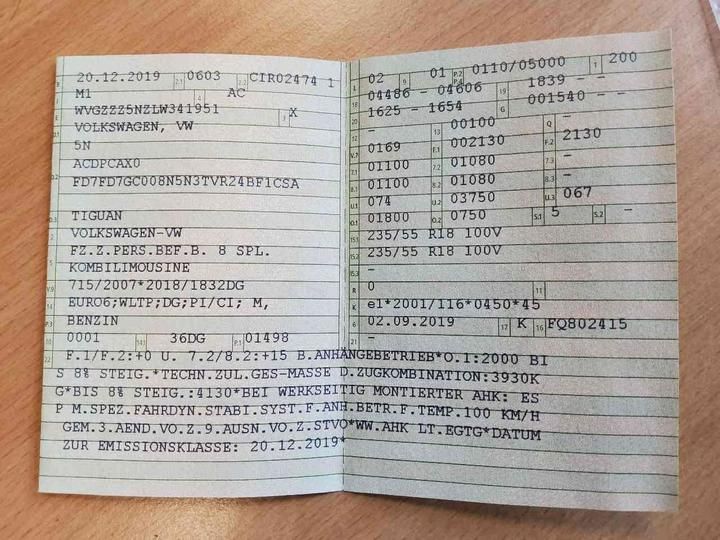 B 20.12.2019 2.1 0603 2.2 CIR02474 1
J M1 4 AC
E WVGZZZ5NZLW341951 3 X
VOLKSWAGEN, VW
5N
ACDPCAX0
D.2 FD7FD7GC008N5N3TVR24BF1CSA
D.3 TIGUAN
2 VOLKSWAGEN-VW
5 FZ.Z.PERS.BEF.B. 8 SPL.
KOMBILIMOUSINE
V.9 715/2007*2018/1832DG
14 EURO6;WLTP;DG;PI/CI; M,
P.3 BENZIN
10 0001 14.1 36DG P.1 01498
L 02 9 01 P.2 P.4 0110/05000 T 200
18 04486 - 04606 19 1839 - -
20 1625 - 1654 G 001540 - -
12 - 13 00100 Q -
V.7 0169 F.1 002130 F.2 2130
7.1 01100 7.2 01080 7.3 -
8.1 01100 8.2 01080 8.3 -
U.1 074 U.2 03750 U.3 067
O.1 01800 O.2 0750 S.1 5 S.2 -
15.1 235/55 R18 100V
15.2 235/55 R18 100V
15.3 -
R 0 11
K e1*2001/116*0450*45
6 02.09.2019 17 K 16 FQ802415
21 -
22 F.1/F.2:+0 U. 7.2/8.2:+15 B.ANHÄNGEBETRIEB*O.1:2000 BI
S 8% STEIG.*TECHN.ZUL.GES-MASSE D.ZUGKOMBINATION:3930K
G*BIS 8% STEIG.:4130*BEI WERKSEITIG MONTIERTER AHK: ES
P M.SPEZ.FAHRDYN.STABI.SYST.F.ANH.BETR.F.TEMP.100 KM/H
GEM.3.AEND.VO.Z.9.AUSN.VO.Z.STVO*WW.AHK LT.EGTG*DATUM
ZUR EMISSIONSKLASSE: 20.12.2019*